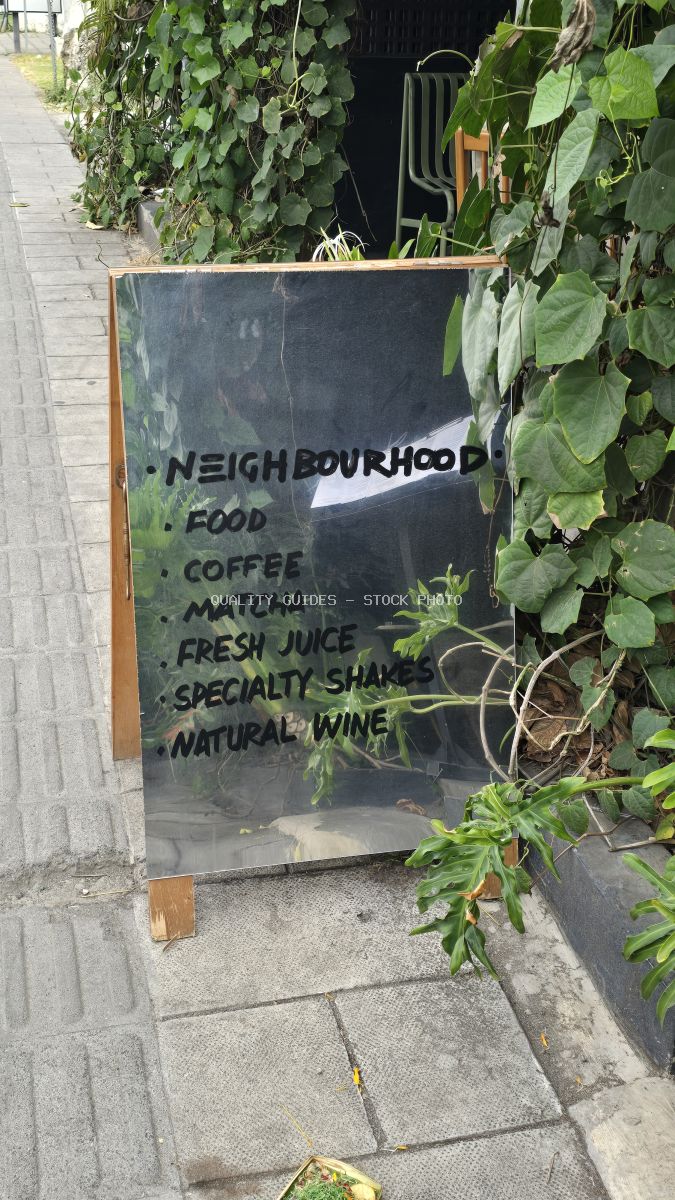 • NEIGHBOURHOOD •
• FOOD
• COFFEE
• MATCHA
• FRESH JUICE
• SPECIALTY SHAKES
• NATURAL WINE
QUALITY GUIDES – STOCK PHOTO